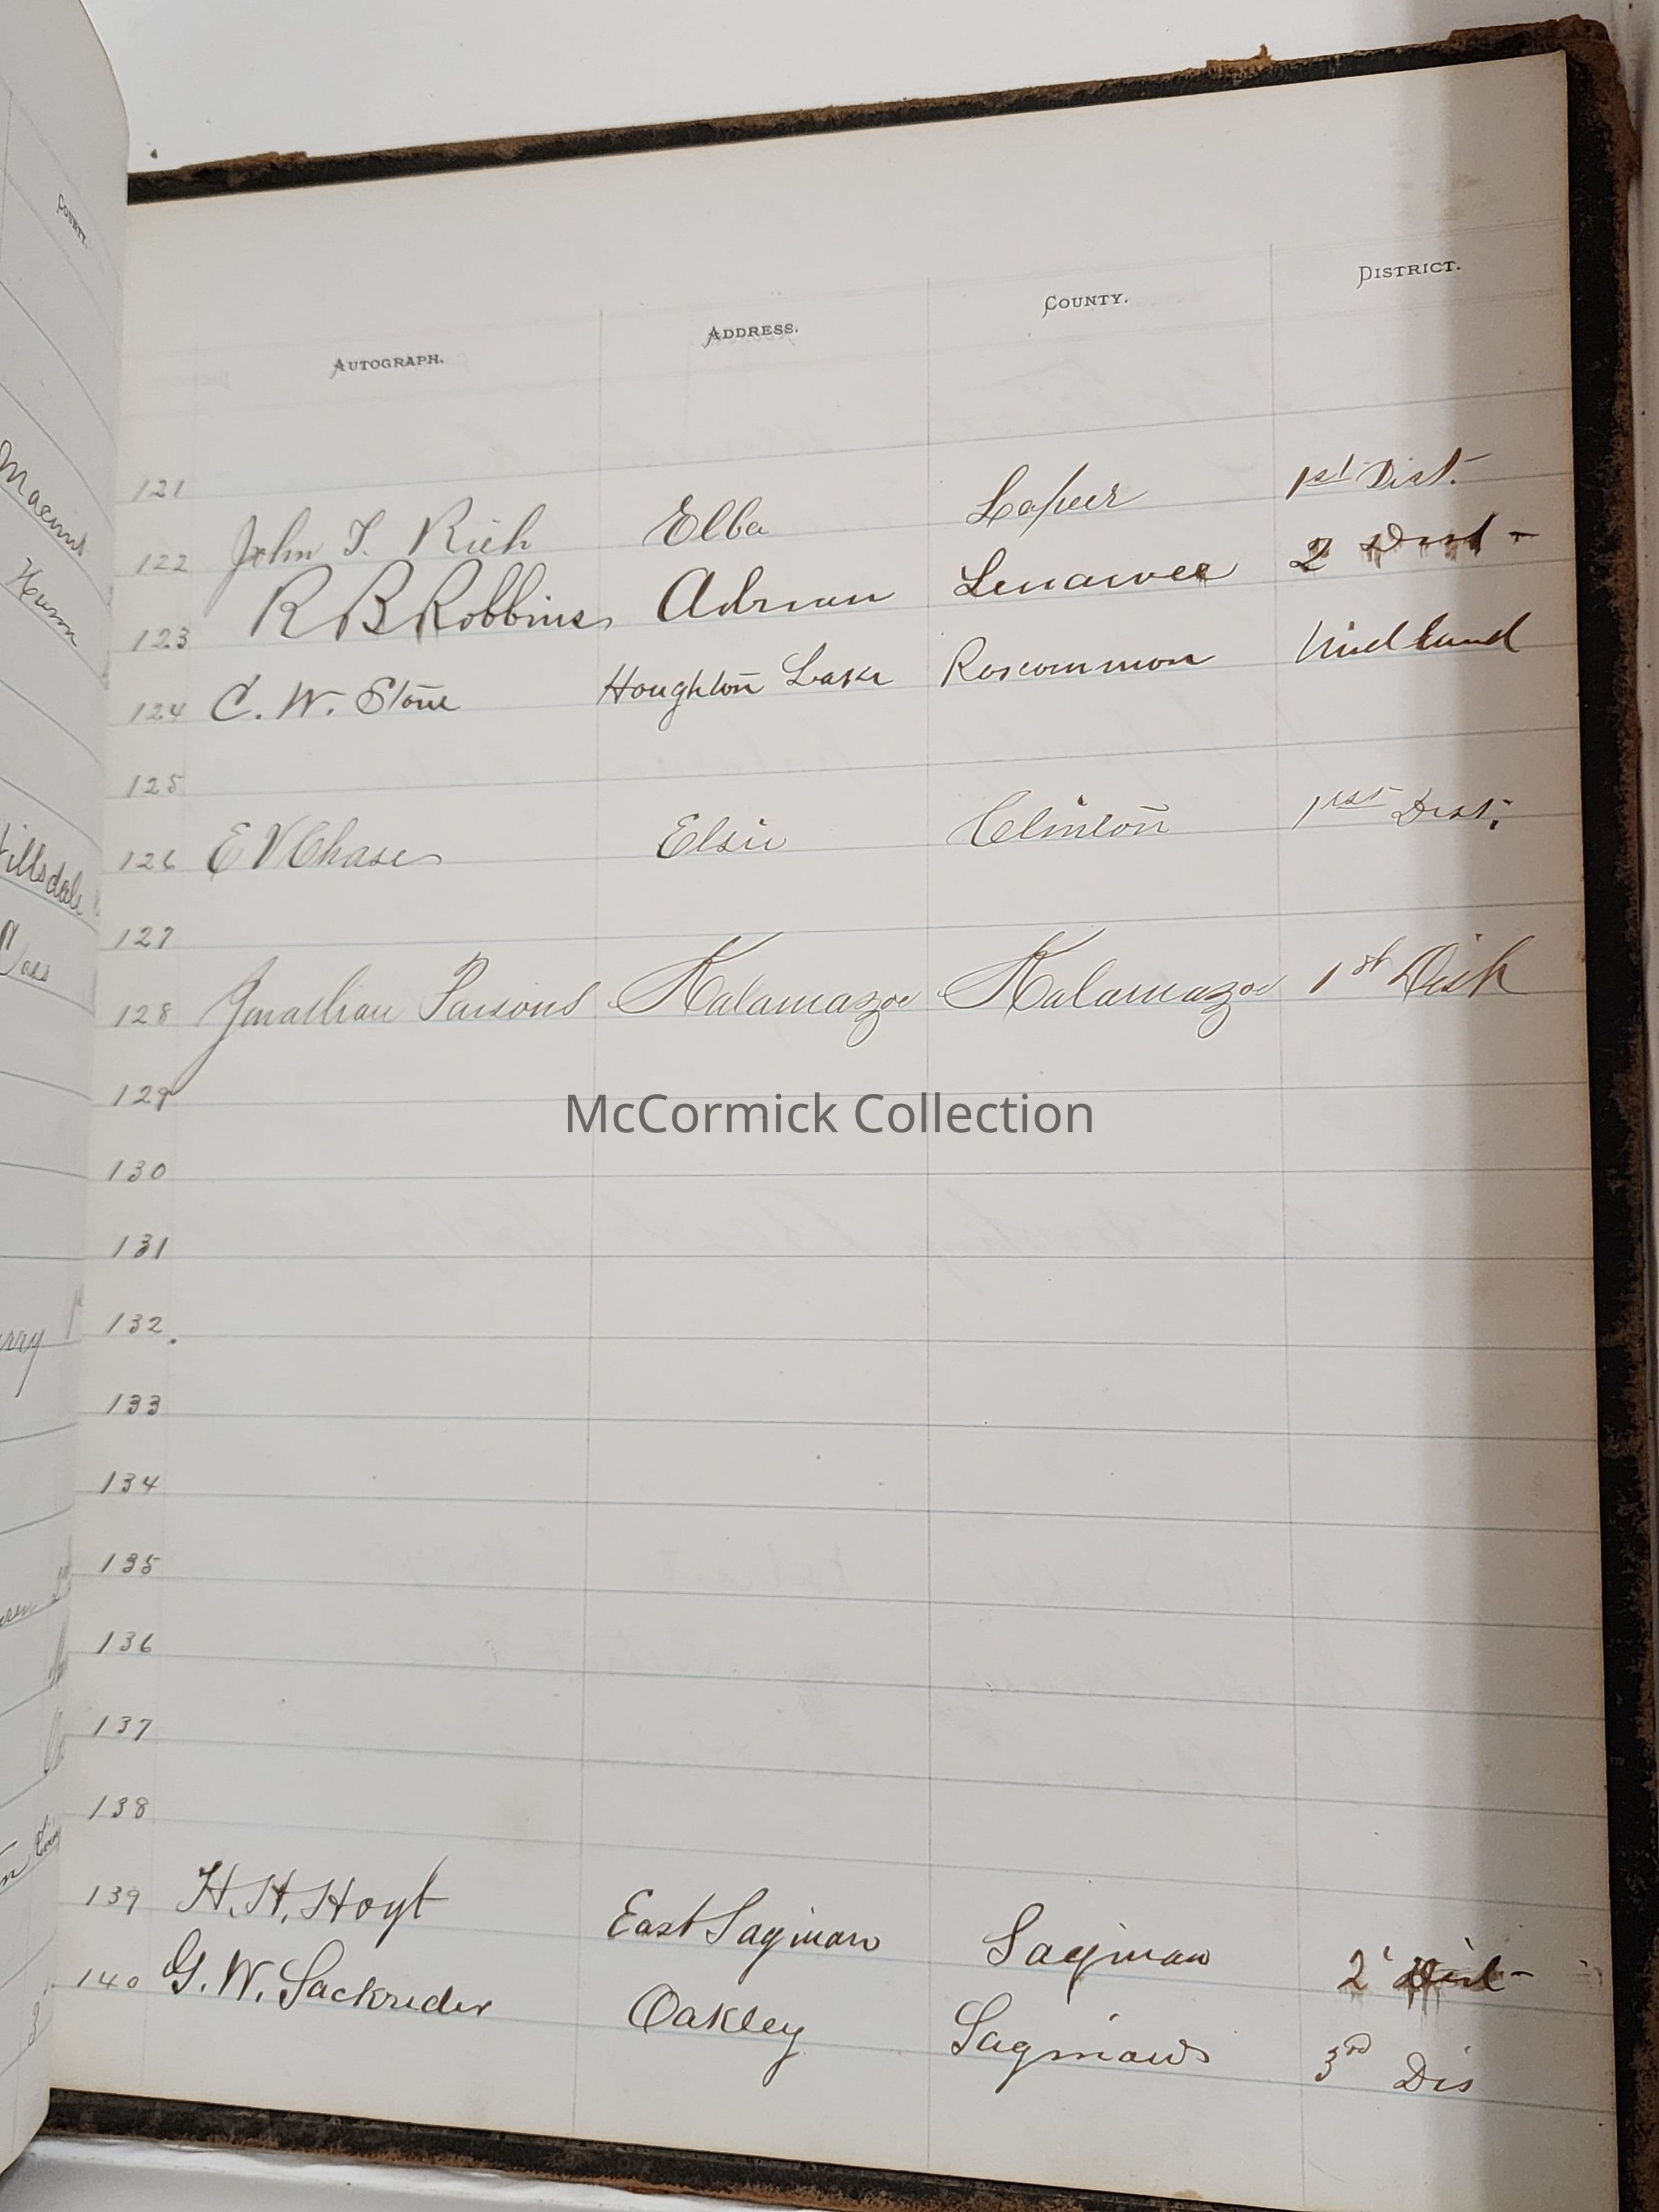 COUNTY.
Hillsdale
Cass
AUTOGRAPH. ADDRESS. COUNTY. DISTRICT.
121
122 John T. Rich Elba Lapeer 1st Dist.
123 R B Robbins Adrian Lenawee 2 Dist -
124 C. W. Stone Houghton Lake Roscommon Midland
125
126 E V Chase Elsie Clinton 1rst Dist.
127
128 Jonathan Parsons Kalamazoo Kalamazoo 1st Dist
129
McCormick Collection
130
131
132.
133
134
135
136
137
138
139 H. H. Hoyt East Saginaw Saginaw 2' Dist -
140 G. W. Sackrider Oakley Saginaw 3rd Dis